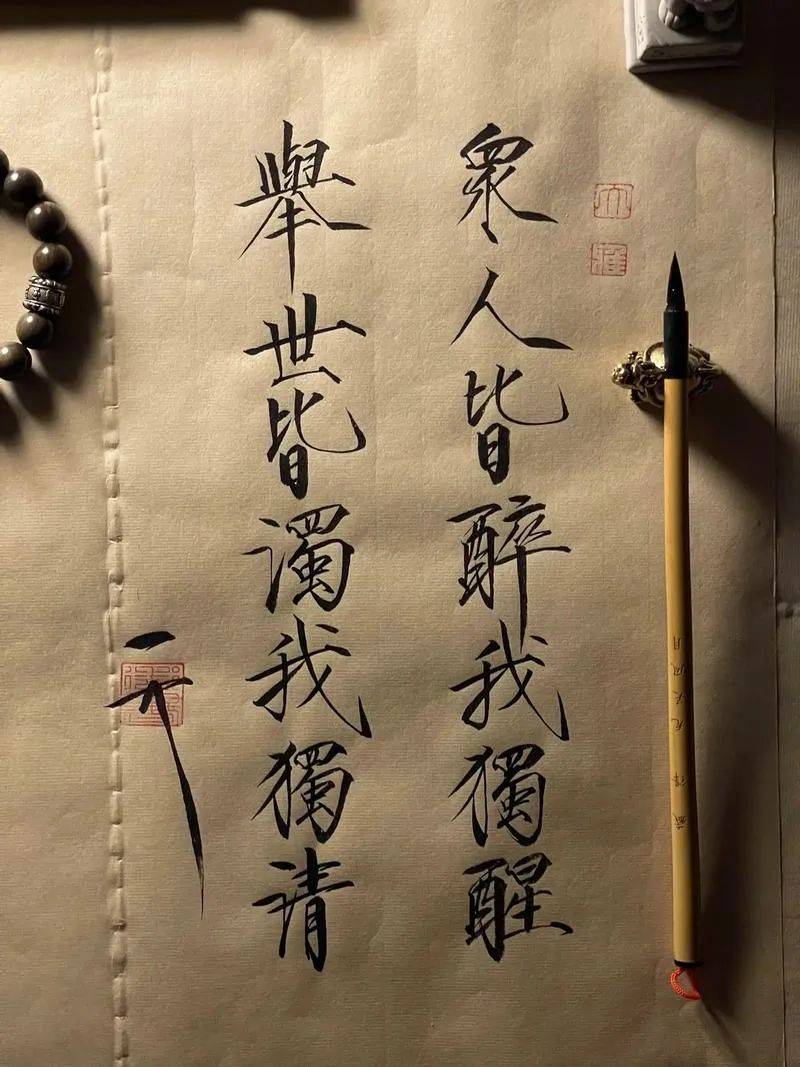 眾人皆醉我獨醒
舉世皆濁我獨清